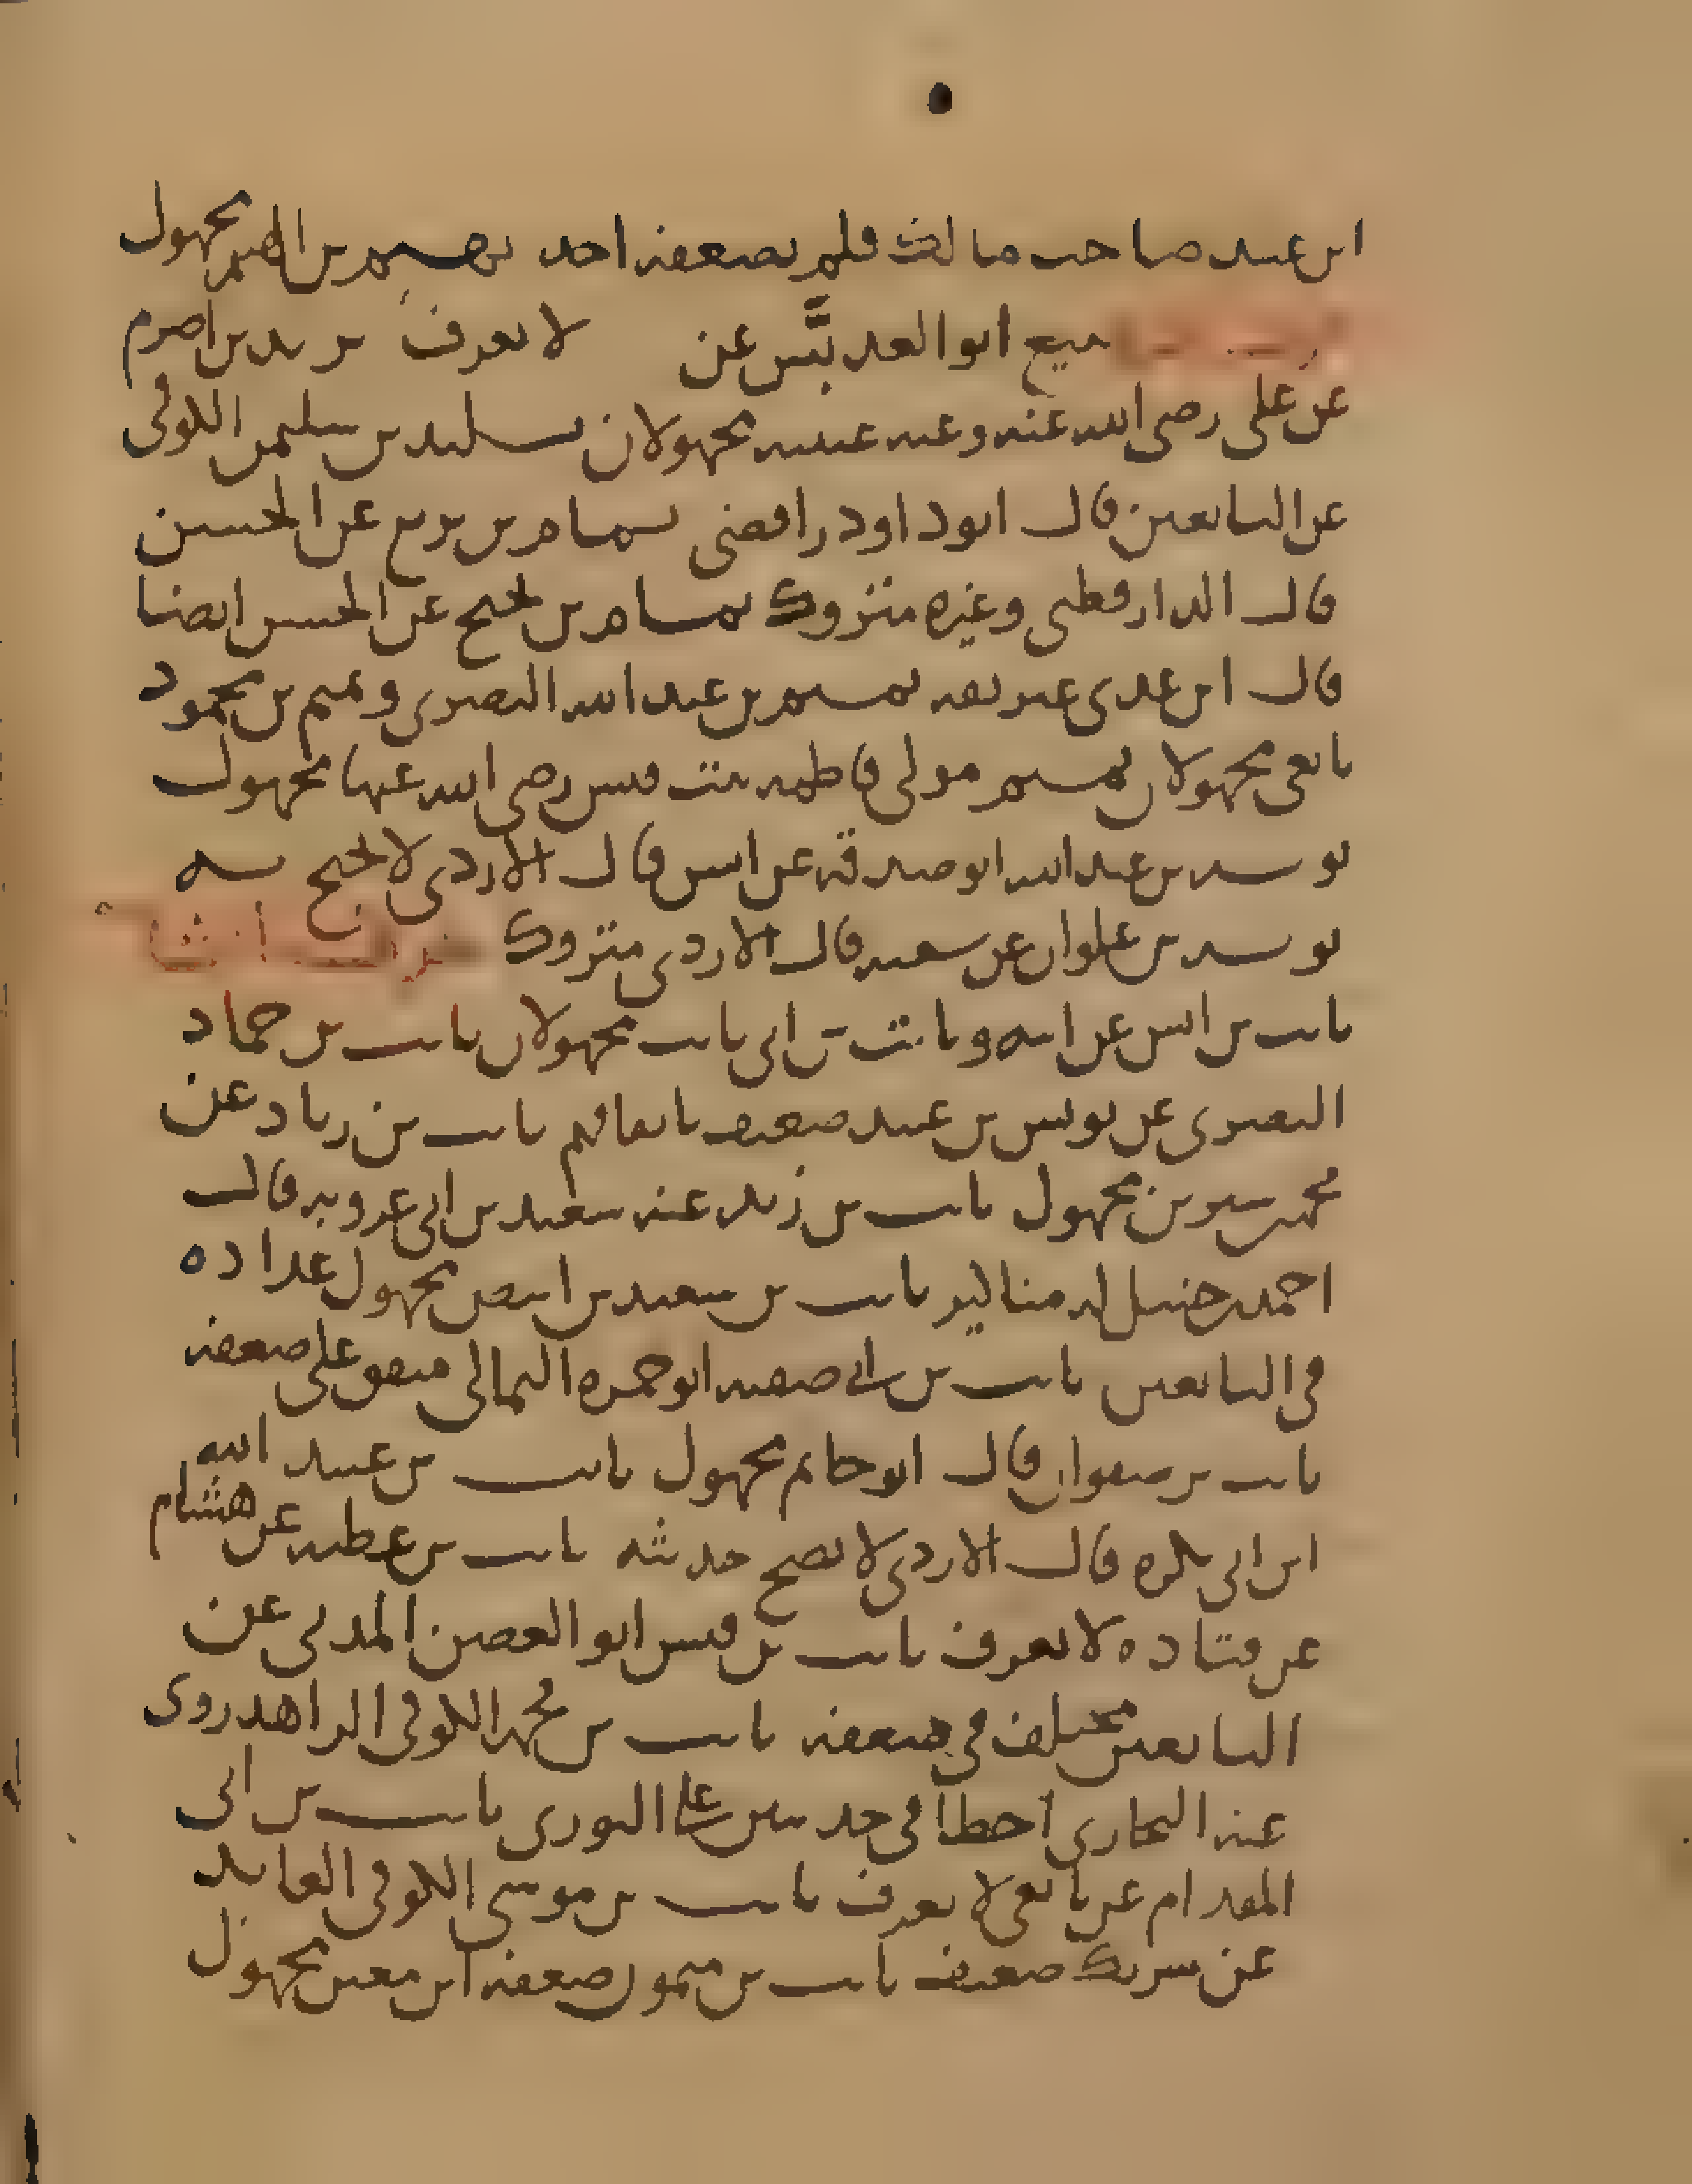 ابن عبيد صاحب مالك فلم يضعفه احد بهيم بن الهيثم مجهول
سبيع ابو العدبس عن لا يعرف يزيد بن اصرم
عن علي رضي الله عنه وعنه عتيبة مجهولان تليد بن سليمن الكوفي
عن التابعين قال ابو داود رافضي تمام بن بزيع عن الحسن
قال الدارقطني وغيره متروك تمام بن نجيح عن الحسن ايضا
قال ابن عدي غير ثقه تميم بن عبد الله البصري وتميم بن محمود
تابعي مجهولان تميم مولى فاطمه بنت قيس رضي الله عنها مجهول
توبه بن عبد الله ابو صدقه عن انس قال الازدي لا يحتج به
توبه بن علوان عن سعيد قال الازدي متروك حرف الثا
ثابت بن انس عن ابيه وثابت بن ابي ثابت مجهولان ثابت بن حماد
البصري عن يونس بن عبيد ضعيف باتفاقهم ثابت بن زياد عن
محمد بن سيرين مجهول ثابت بن زيد عنه سعيد بن ابي عروبه قال
احمد بن حنبل له مناكير ثابت بن سعيد بن ابيض مجهول عداده
في التابعين ثابت بن ابي صفيه ابو حمزه الثمالي متفق على ضعفه
ثابت بن صفوان قال ابو حاتم مجهول ثابت بن عبيد الله
ابن ابي بكره قال الازدي لا يصح حديثه ثابت بن عطيه عن هشام
عن قتاده لا يعرف ثابت بن قيس ابو الغصن المدني عن
التابعين مختلف في ضعفه ثابت بن محمد الكوفي الزاهد روى
عنه البخاري اخطا في حديثين على الثوري ثابت بن ابي
المقدام عن تابعي لا يعرف ثابت بن موسى الكوفي العابد
عن شريك ضعيف ثابت بن ميمون ضعفه ابن معين مجهول